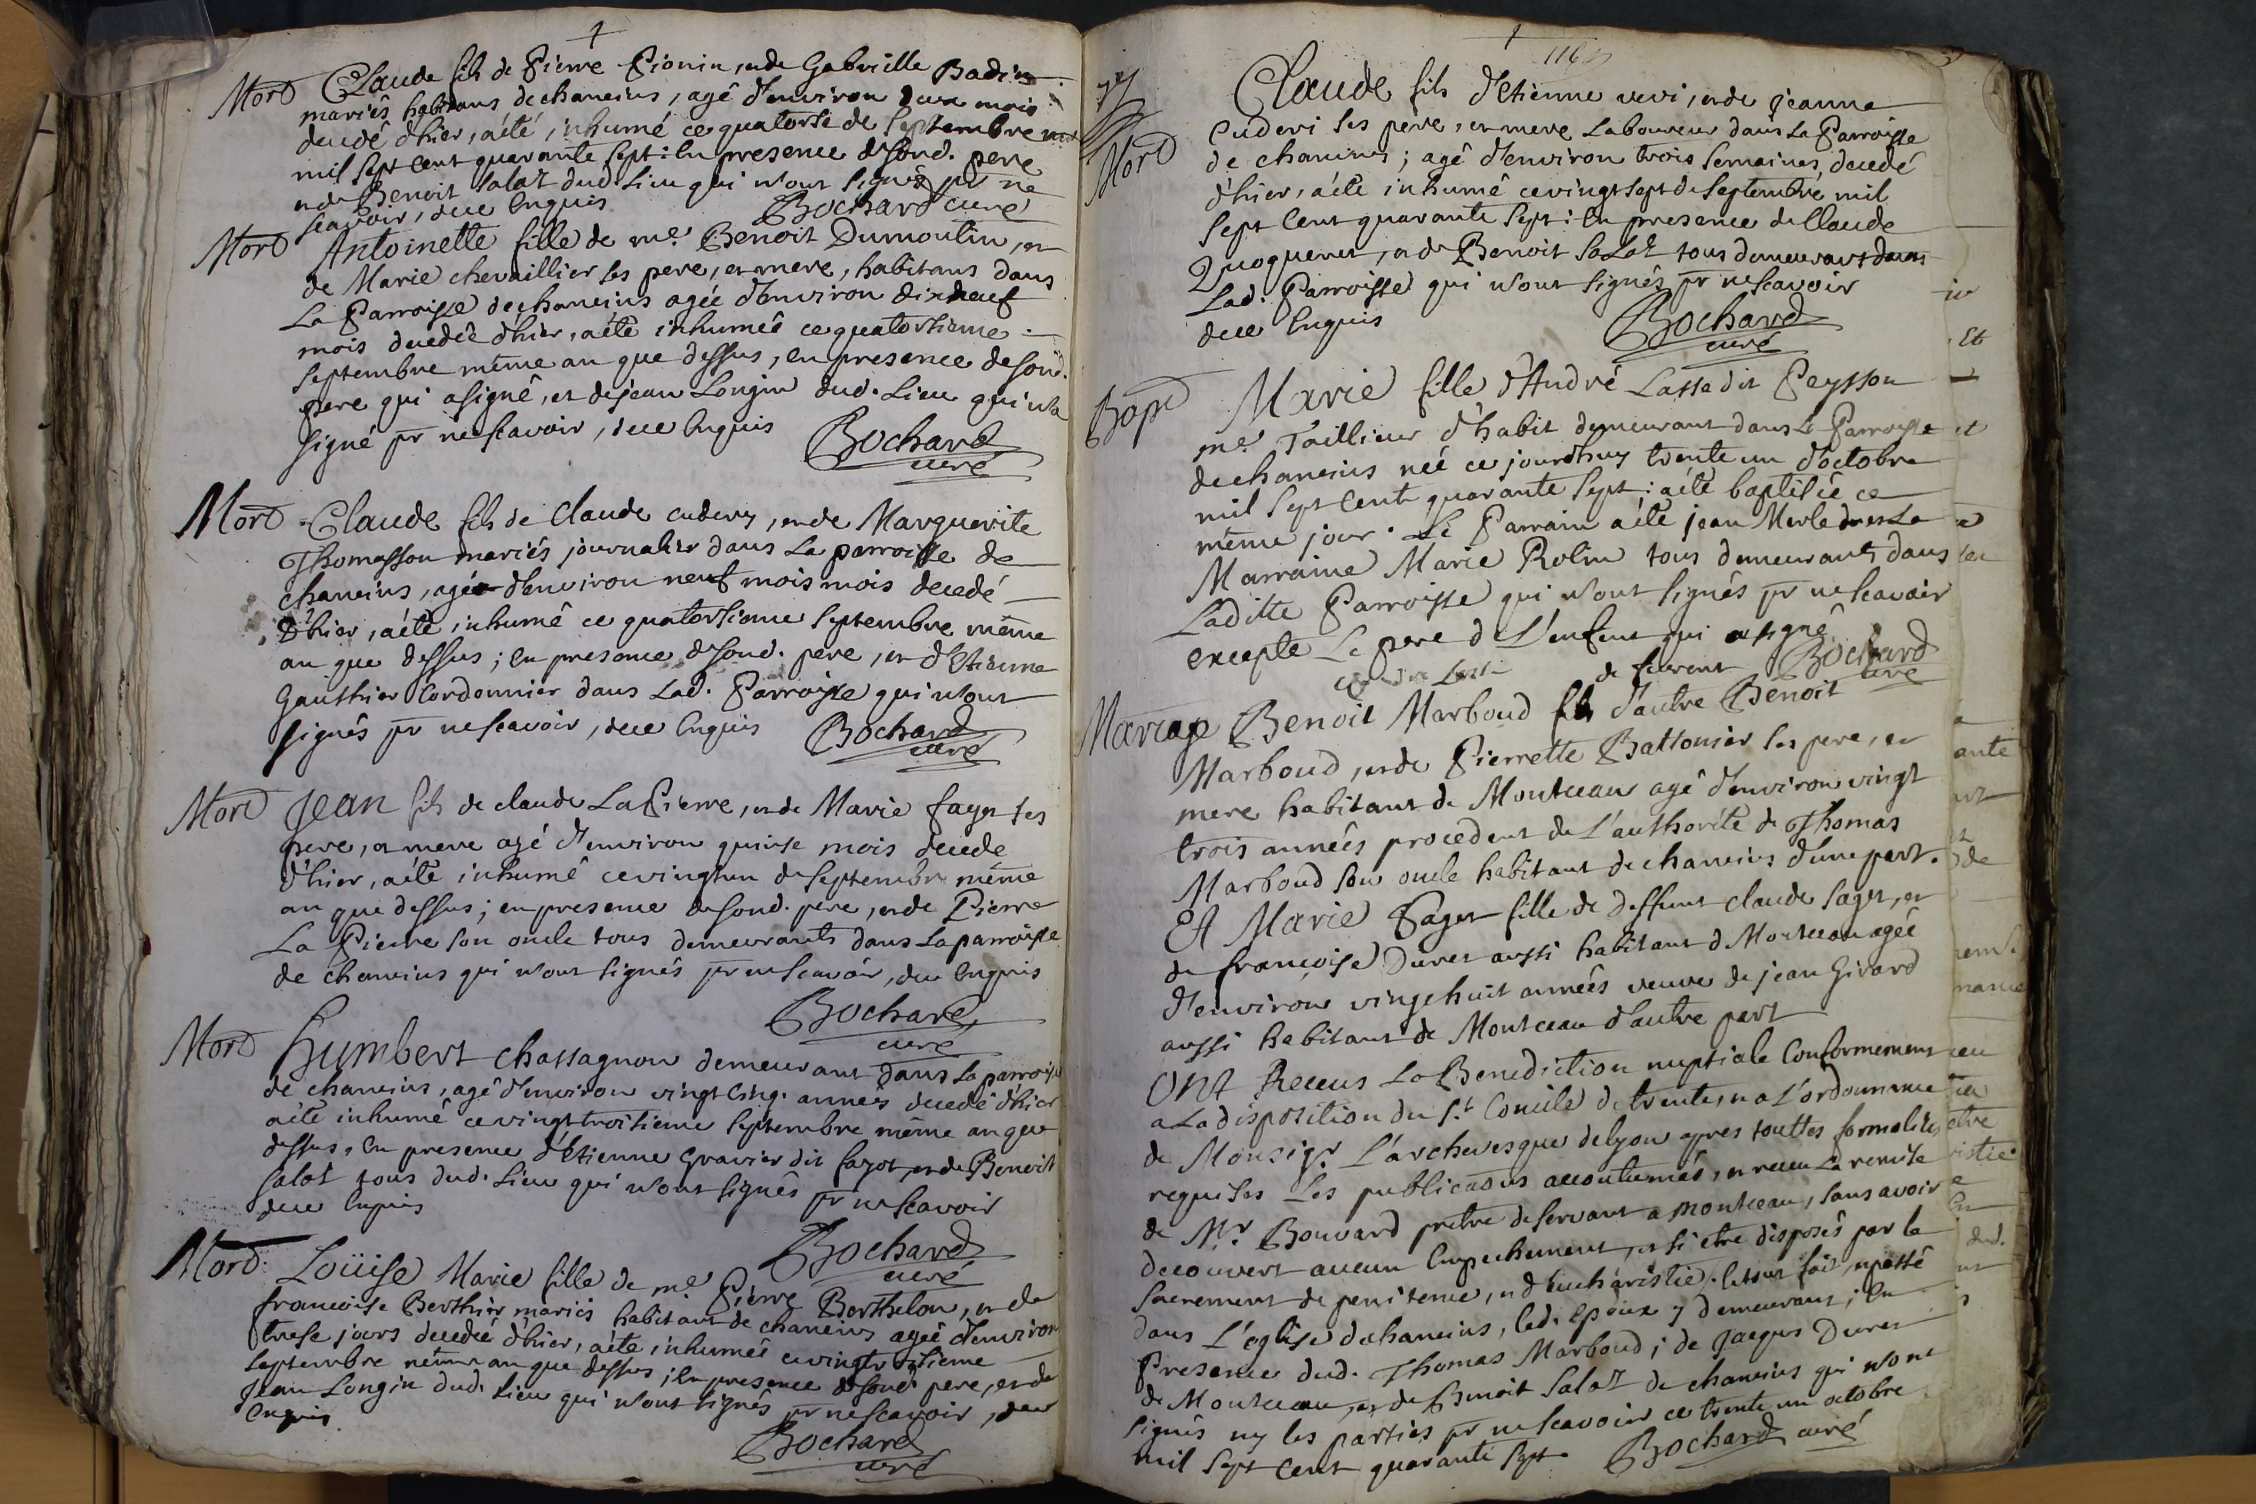 Mort Claude fils de Pierre Pionin, et de Gabrielle Badin
mariés habitans de chaneins, agé d'environ deux mois
decedé d'hier, a été inhumé ce quatorse de septembre
mil sept cent quarante sept : En presence de soud. pere
et de Benoit Salaz dud. Lieu qui n'ont signés pr ne
scavoir, de ce Enquis Bochard curé
Mort Antoinette fille de me. Benoit Dumoulin, et
de Marie chevaillier ses pere, et mere, habitans dans
La Parroisse de chaneins agée d'environ dix neuf
mois decedée d'hier, a été inhumée ce quatorsieme
septembre même an que dessus, En presence de soud.
pere qui a signé, et de jean Longin dud. Lieu qui n'a
signé pr ne scavoir, de ce Enquis Bochard
curé
Mort Claude fils de Claude cudery, et de Marguerite
Thomasson mariés journalier dans La parroisse de
chaneins, agé d'environ neuf mois mois decedé
d'hier, a été inhumé ce quatorsieme septembre même
an que dessus ; En presence de soud. pere, et d'Etienne
Gauthier Cordonnier dans Lad. Parroisse qui n'ont
signés pr ne scavoir, de ce Enquis Bochard
curé
Mort Jean fils de claude La Pierre, et de Marie fayet ses
pere, et mere agé d'environ quinse mois decedé
d'hier, a été inhumé ce vingt un de septembre même
an que dessus ; en presence de soud. pere, et de Pierre
La Pierre son oncle tous demeurants dans La parroisse
de chaneins qui n'ont signés pr ne scavoir, de ce Enquis
Bochard
curé
Mort Humbert chassagnon demeurant dans La parroisse
de chaneins, agé d'environ vingt Cinq. années decedé d'hier
a été inhumé ce vingt troisieme septembre même an que
dessus, En presence d'Etienne Gravier dit fayot, et de Benoit
Salot tous dud. Lieu qui n'ont signés pr ne scavoir
de ce Enquis
Bochard
curé
Mort Loüise Marie fille de me. Pierre Berthelon, et de
francoise Berthier mariés habitant de chaneins agée d'environ
trese jours decedée d'hier, a été inhumée ce vingt troisieme
septembre même an que dessus ; En presence de soud. pere, et de
Jean Longin dud. Lieu qui n'ont signés pr ne scavoir, de ce
Enquis
Bochard
curé
116
Claude fils d'Etienne vevi, et de jeanne
Mort Cuderi ses pere, et mere Laboureur dans La Parroisse
de chaneins ; agé d'environ trois semaines, decedé
d'hier, a été inhumé ce vingt sept de septembre mil
sept Cent quarante sept : En presence de Claude
et de Benoit Salot tous demeurans dans
Lad. Parroisse qui n'ont signés pr ne scavoir
de ce Enquis Bochard
curé
Bapt Marie fille d'André Lassa dit Peysson
me. Taillieur d'habit demeurant dans La Parroisse
de chaneins née ce jourdhuy trente un d'octobre
mil sept Cent quarante sept : a été baptisée ce
même jour. Le Parrain a été jean Merle La
Marraine Marie Rolin tous demeurants dans
Laditte Parroisse qui n'ont signés pr ne scavoir
excepte Le pere de L'enfent qui a signé
Bochard
curé
Mariage Benoit Marboud fils d'autre Benoit
Marboud, et de Pierrette Battonier ses pere, et
mere habitant de Montceau agé d'environ vingt
trois années procedent de L'authorité de Thomas
Marboud son oncle habitant de chaneins d'une part.
Et Marie Fayet fille de deffunt claude fayet, et
de francoise Duret aussi habitant de Montceau agée
d'environ vingt huit années veuve de jean Girard
aussi habitant de Montceau d'autre part
Ont Receus La Benediction nuptiale Conformement
a La disposition du St. Concile de trente, et a L'ordonnance
de Monsigr. L'archevesque de Lyon apres touttes formalités
requises Les publications accoutumées, et receu La remise
de Mr. Bouvard prêtre deservant a montceau, sans avoir
decouvert aucun Empechement, et si etre disposés par le
sacrement de penitence, et d'Eucharistie. Le tout fait, et passé
dans L'eglise de chaneins, led. Epoux y demeurant ; En
Presence dud. Thomas Marboud ; de Jacques Duret
de Montceau, et de Benoit Salaz de chaneins qui n'ont
signés ny les parties pr ne scavoir ce trente un octobre
mil sept Cent quarante sept Bochard curé